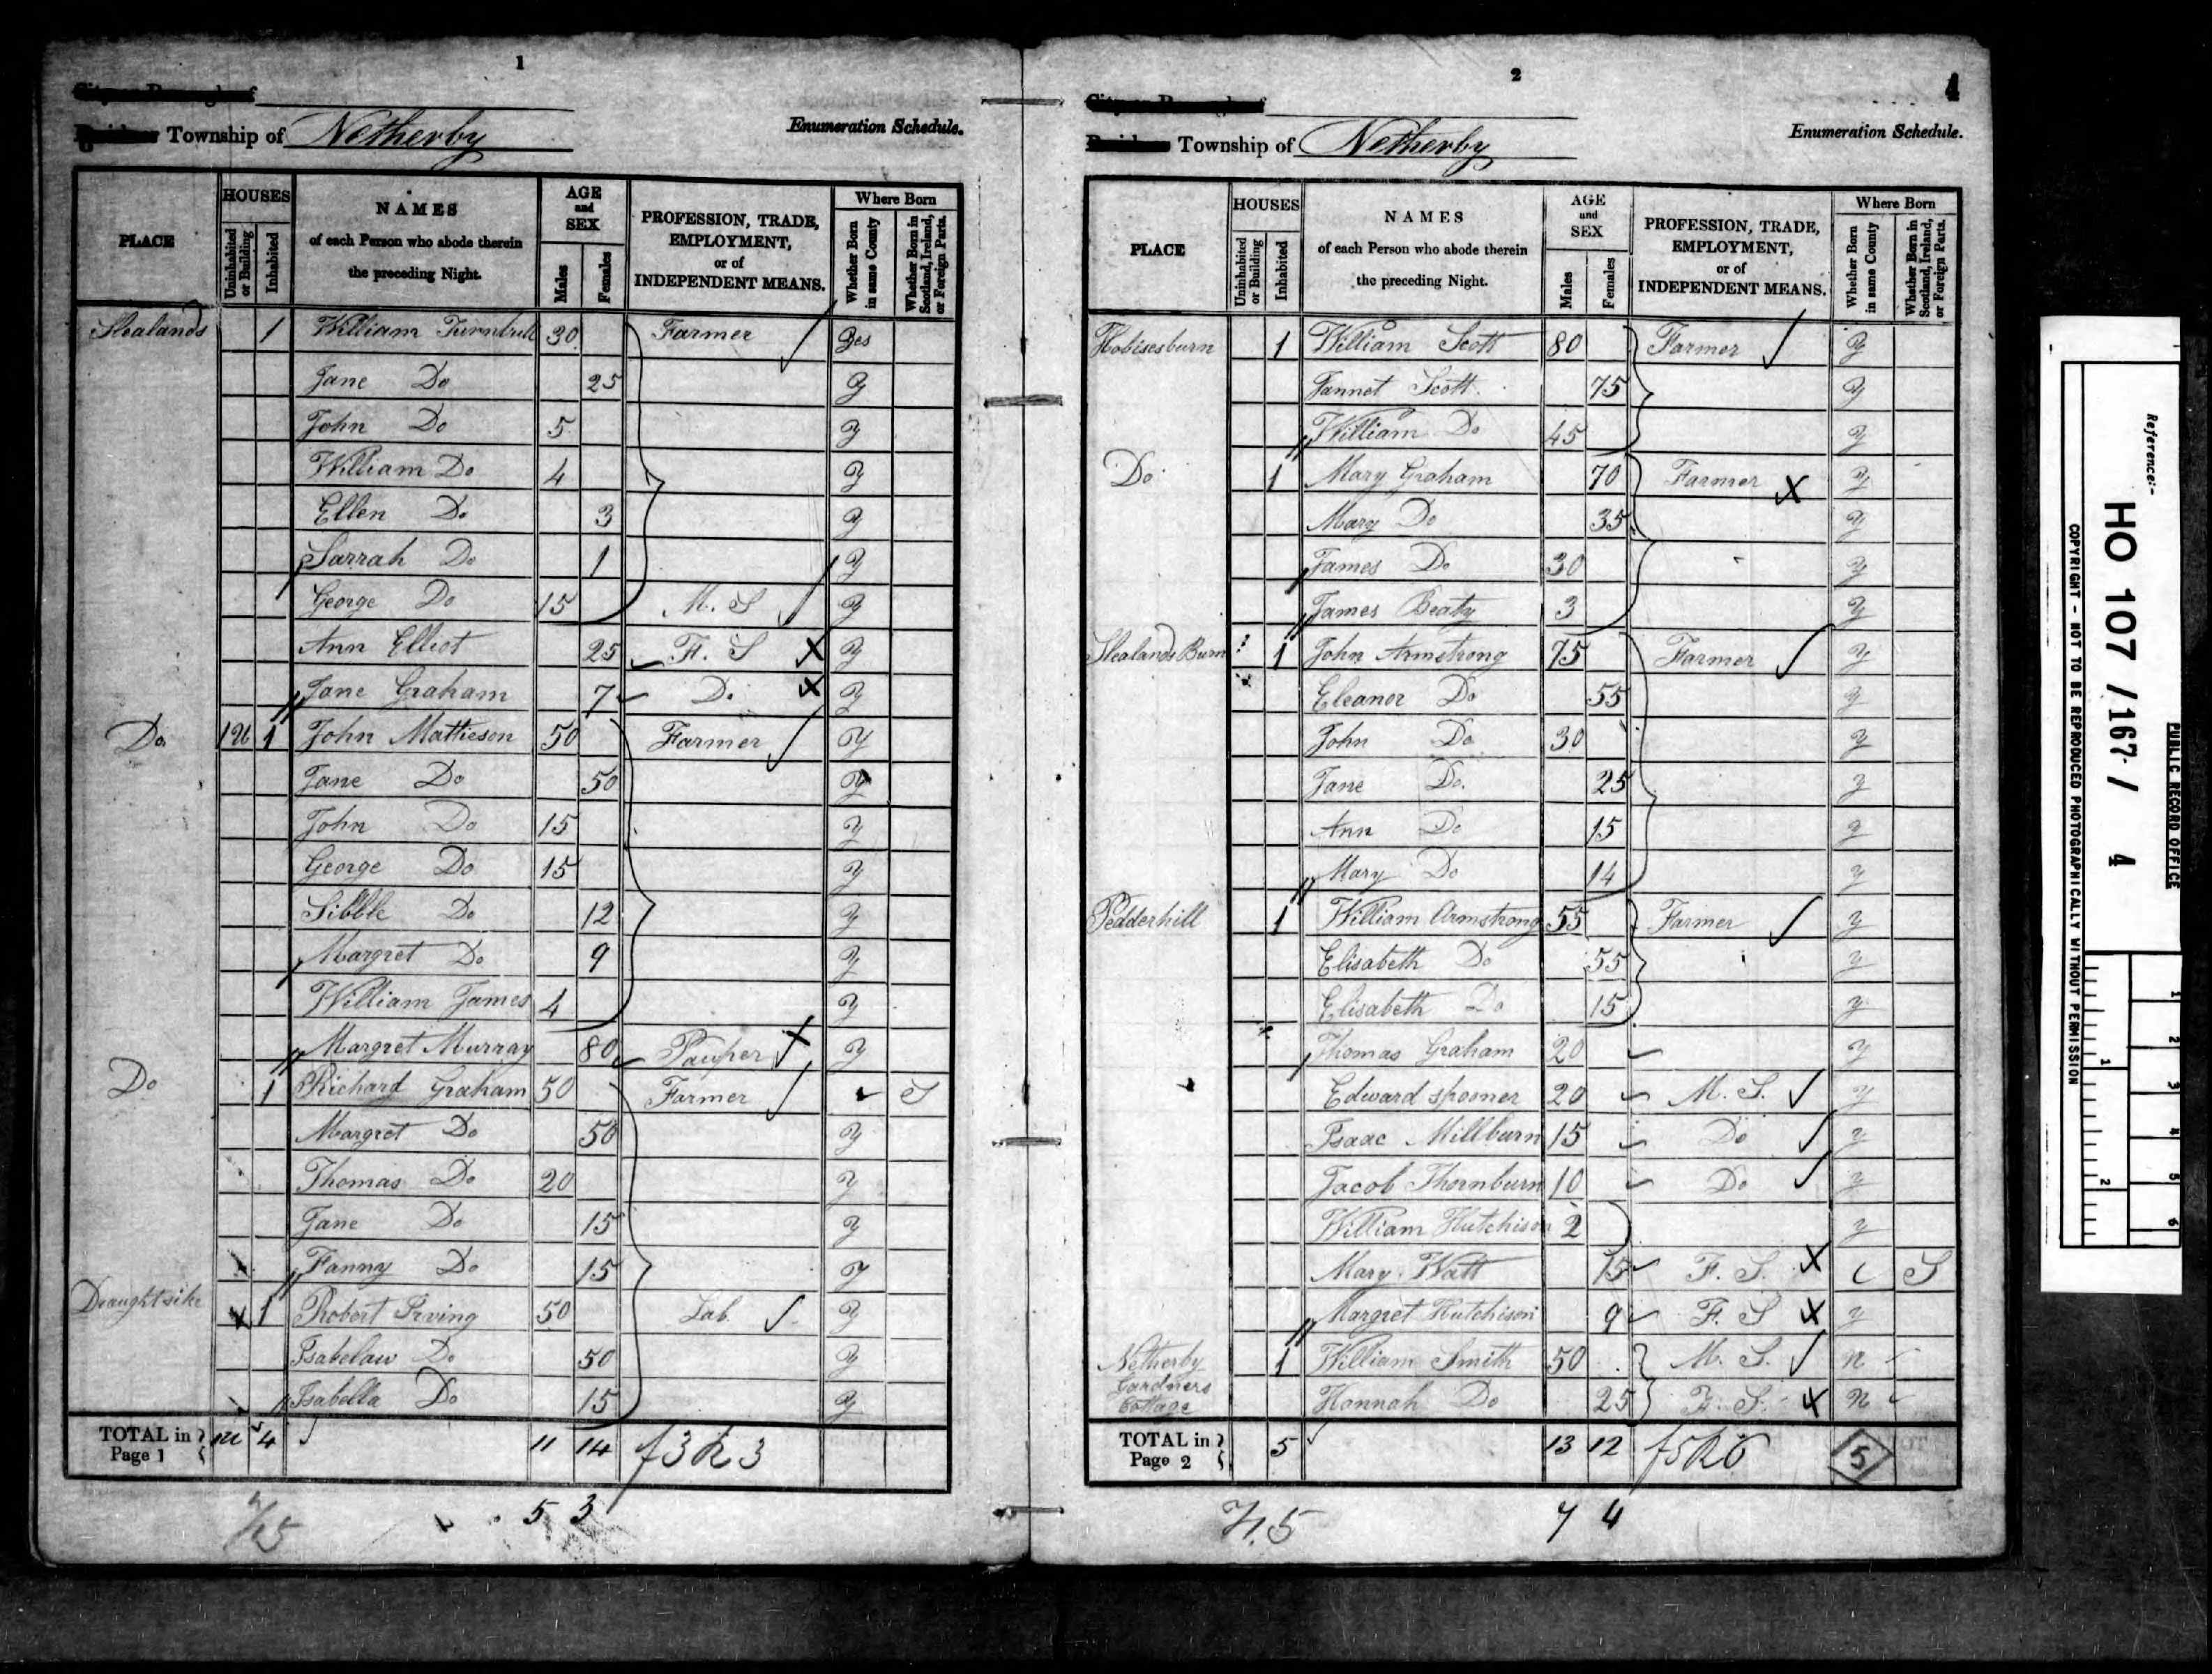 1
Township of Netherby
Enumeration Schedule.
PLACE
HOUSES
Uninhabited or Building
Inhabited
NAMES
of each Person who abode therein
the preceding Night.
AGE and SEX
Males
Females
PROFESSION, TRADE, EMPLOYMENT, or of INDEPENDENT MEANS.
Where Born
Whether Born in same County
Whether Born in Scotland, Ireland, or Foreign Parts.
Slealands 1 William Turnbull 30 Farmer Yes
Jane Do 25 y
John Do 5 y
William Do 4 y
Ellen Do 3 y
Sarrah Do 1 y
George Do 15 M. S y
Ann Elliot 25 F. S y
Jane Graham 7 Do y
Do 1 John Mattieson 50 Farmer y
Jane Do 50 y
John Do 15 y
George Do 15 y
Sibble Do 12 y
Margret Do 9 y
William James 4 y
Margret Murray 80 Pauper y
Do 1 Richard Graham 50 Farmer S
Margret Do 50 y
Thomas Do 20 y
Jane Do 15 y
Fanny Do 15 y
Draughtsike 1 Robert Irving 50 Lab. y
Isabelaw Do 50 y
Isabella Do 15 y
TOTAL in Page 1 4 11 14
5 3
2
4
Township of Netherby
Enumeration Schedule.
PLACE
HOUSES
Uninhabited or Building
Inhabited
NAMES
of each Person who abode therein
the preceding Night.
AGE and SEX
Males
Females
PROFESSION, TRADE, EMPLOYMENT, or of INDEPENDENT MEANS.
Where Born
Whether Born in same County
Whether Born in Scotland, Ireland, or Foreign Parts.
Hobisesburn 1 William Scott 80 Farmer y
Jannet Scott 75 y
William Do 45 y
Do 1 Mary Graham 70 Farmer y
Mary Do 35 y
James Do 30 y
James Beaty 3 y
Slealands Burn 1 John Armstrong 75 Farmer y
Eleanor Do 55 y
John Do 30 y
Jane Do. 25 y
Ann Do 15 y
Mary Do 14 y
Pedderhill 1 William Armstrong 55 Farmer y
Elisabeth Do 55 y
Elisabeth Do 15 y
Thomas Graham 20 y
Edward Spooner 20 M. S. y
Isaac Millburn 15 Do y
Jacob Thornburn 10 Do y
William Hutchison 2 y
Mary Watt 15 F. S. S
Margret Hutchison 9 F. S y
Netherby Gardners Cottage 1 William Smith 50 M. S. n
Hannah Do 25 F. S. n
TOTAL in Page 2 5 13 12 5
7 4
Reference:-
HO 107 / 167 / 4
PUBLIC RECORD OFFICE
COPYRIGHT - NOT TO BE REPRODUCED PHOTOGRAPHICALLY WITHOUT PERMISSION
1 2 3 4 5 6
1 2